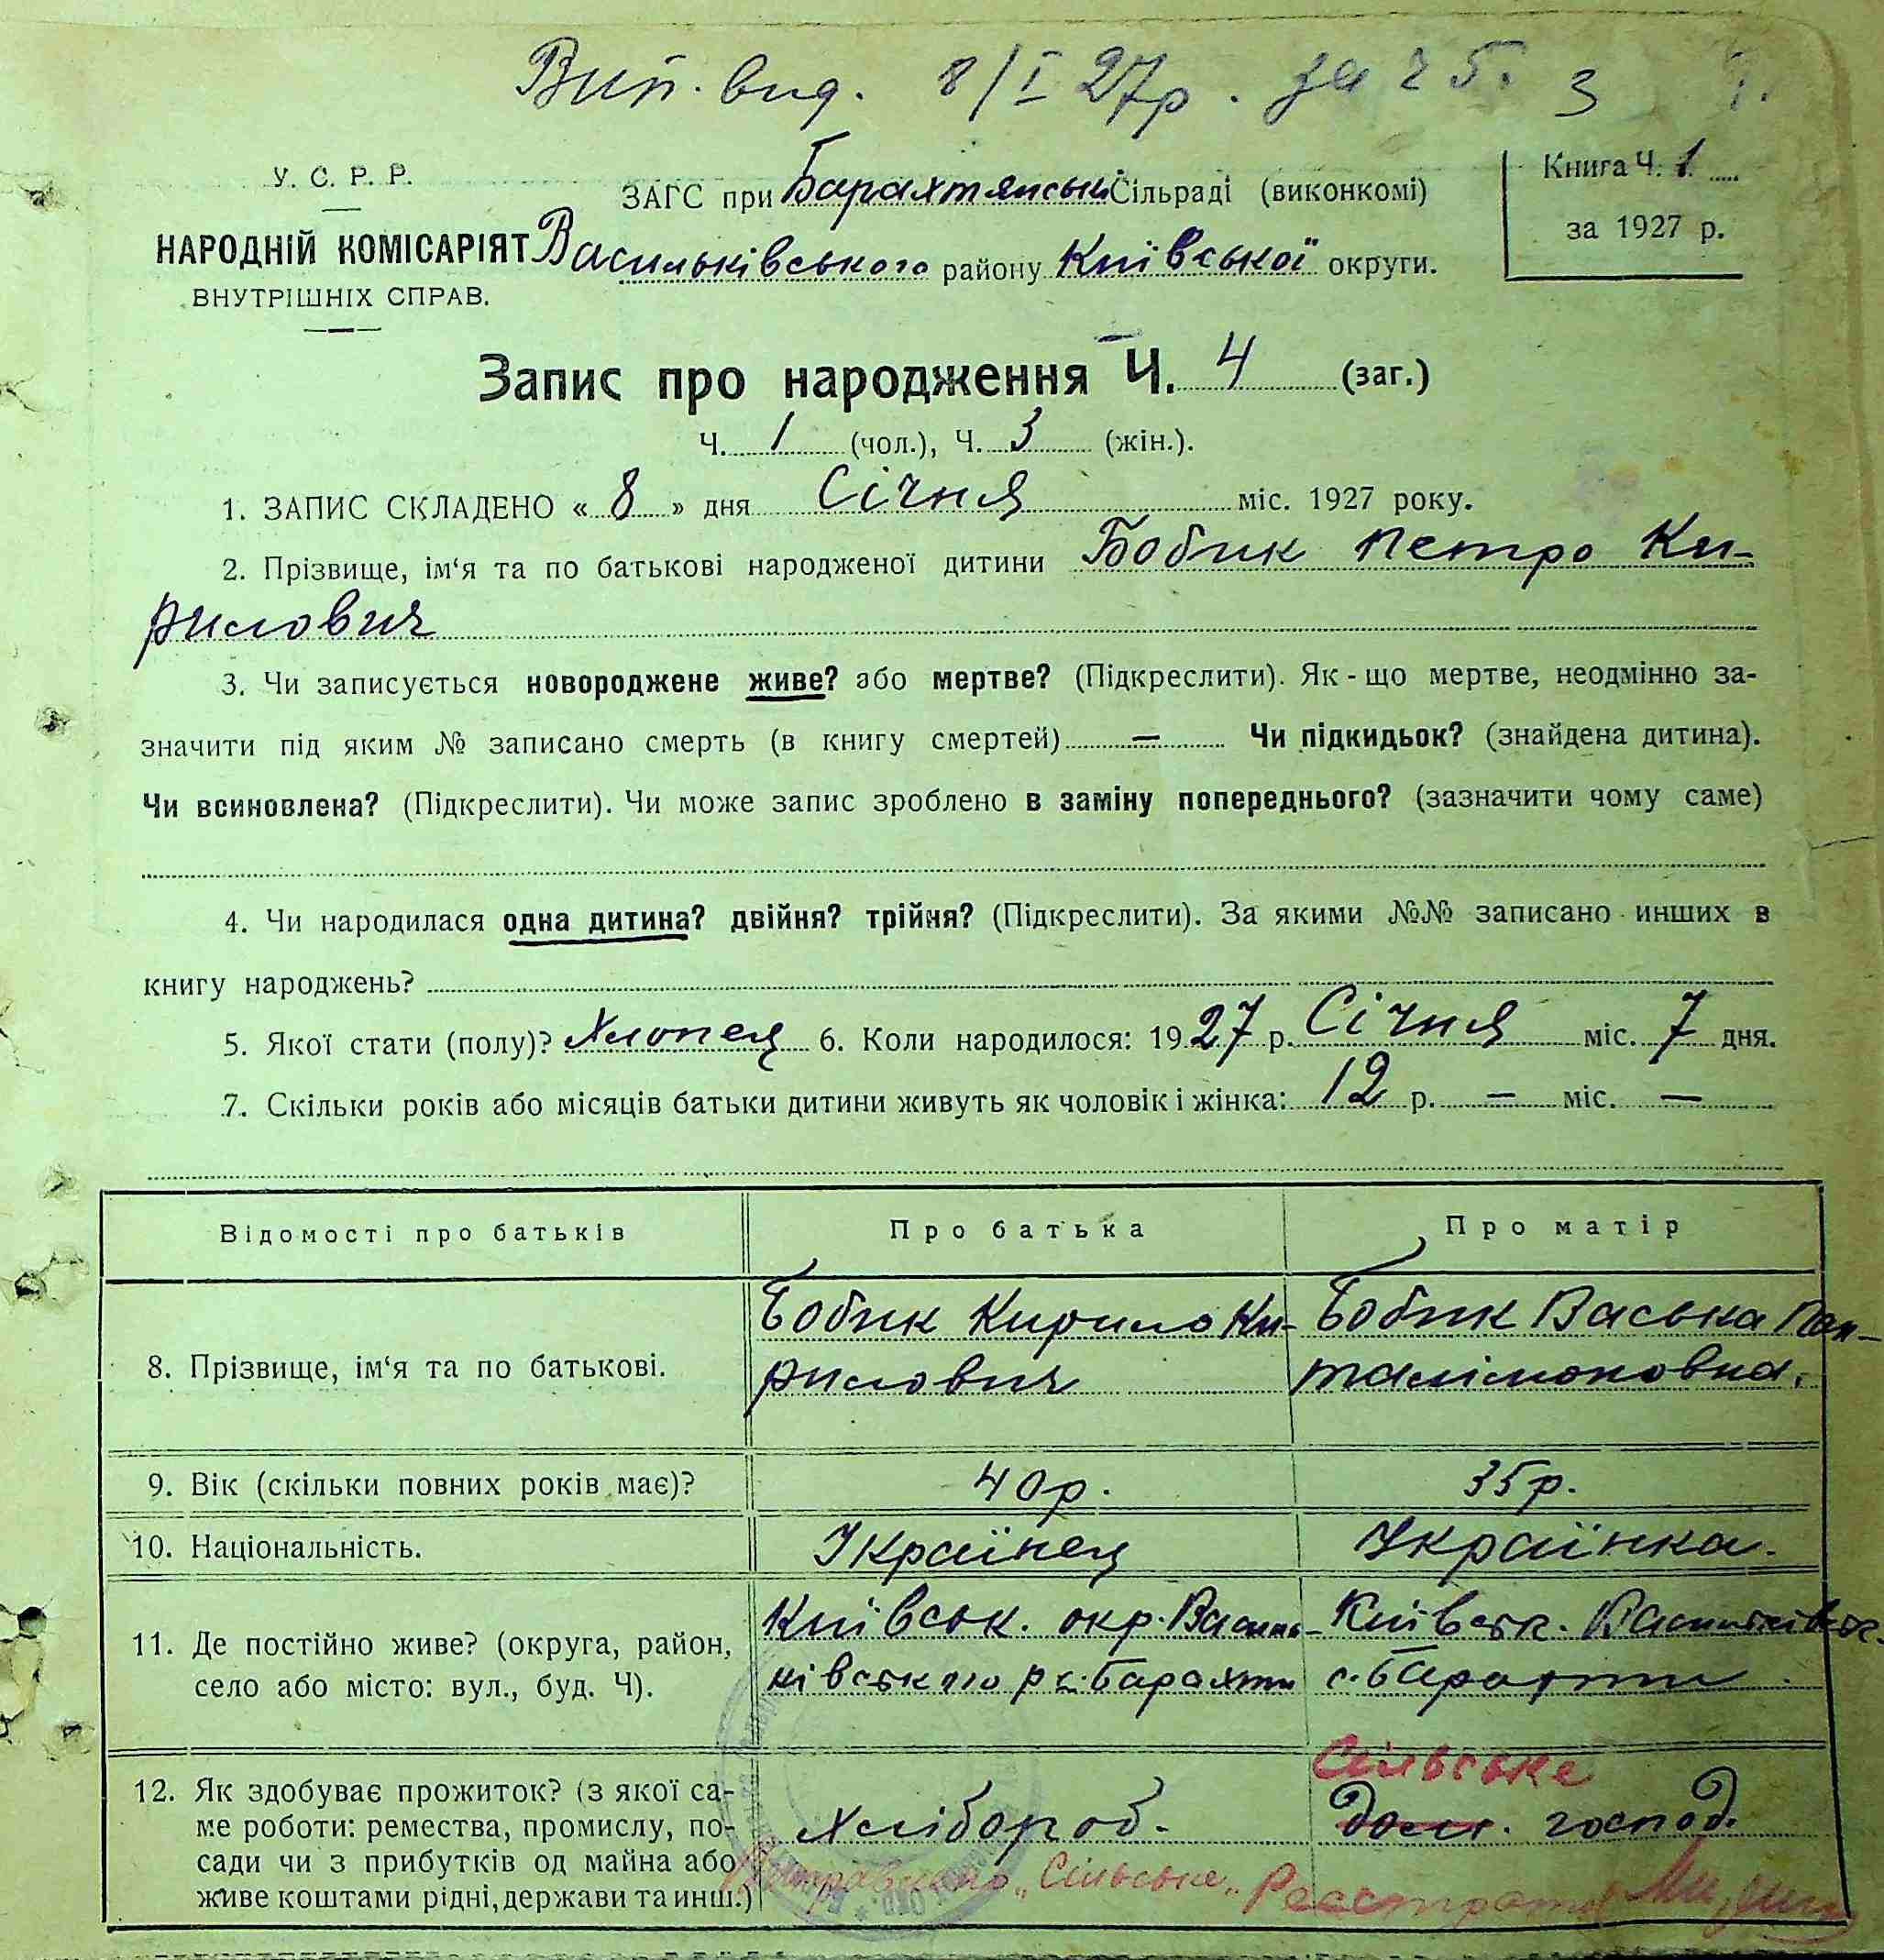 Вип. вид. 8/I 27р. за ч 5. 3
У. С. Р. Р.
НАРОДНІЙ КОМІСАРІЯТ
ВНУТРІШНІХ СПРАВ.
ЗАГС при Барахтянській Сільраді (виконкомі)
Васильківського району Київської округи.
Книга Ч. 1
за 1927 р.
Запис про народження Ч. 4 (заг.)
Ч. 1 (чол.), Ч. 3 (жін.).
1. ЗАПИС СКЛАДЕНО « 8 » дня Січня міс. 1927 року.
2. Прізвище, ім‘я та по батькові народженої дитини Бобик Петро Ки-
рилович
3. Чи записується новороджене живе? або мертве? (Підкреслити). Як - що мертве, неодмінно за-
значити під яким № записано смерть (в книгу смертей) — Чи підкидьок? (знайдена дитина).
Чи всиновлена? (Підкреслити). Чи може запис зроблено в заміну попереднього? (зазначити чому саме)
4. Чи народилася одна дитина? двійня? трійня? (Підкреслити). За якими №№ записано инших в
книгу народжень?
5. Якої стати (полу)? Хлопец 6. Коли народилося: 1927 р. Січня міс. 7 дня.
7. Скільки років або місяців батьки дитини живуть як чоловік і жінка: 12 р. — міс. —
Відомості про батьків Про батька Про матір
8. Прізвище, ім‘я та по батькові.
Бобик Кирило Ки-
рилович
Бобик Васька Пан-
талімоновна.
9. Вік (скільки повних років має)? 40 р. 35 р.
10. Національність. Українец Українка.
11. Де постійно живе? (округа, район,
село або місто: вул., буд. Ч).
Київськ. окр. Василь-
ківського р с. Барахти
Київськ. Васильківськ.
с. Барахти
12. Як здобуває прожиток? (з якої са-
ме роботи: ремества, промислу, по-
сади чи з прибутків од майна або
живе коштами рідні, держави та инш.)
Хлібороб.
Сільське
дом. господ.
Виправлено „Сільське„ Реєстратор